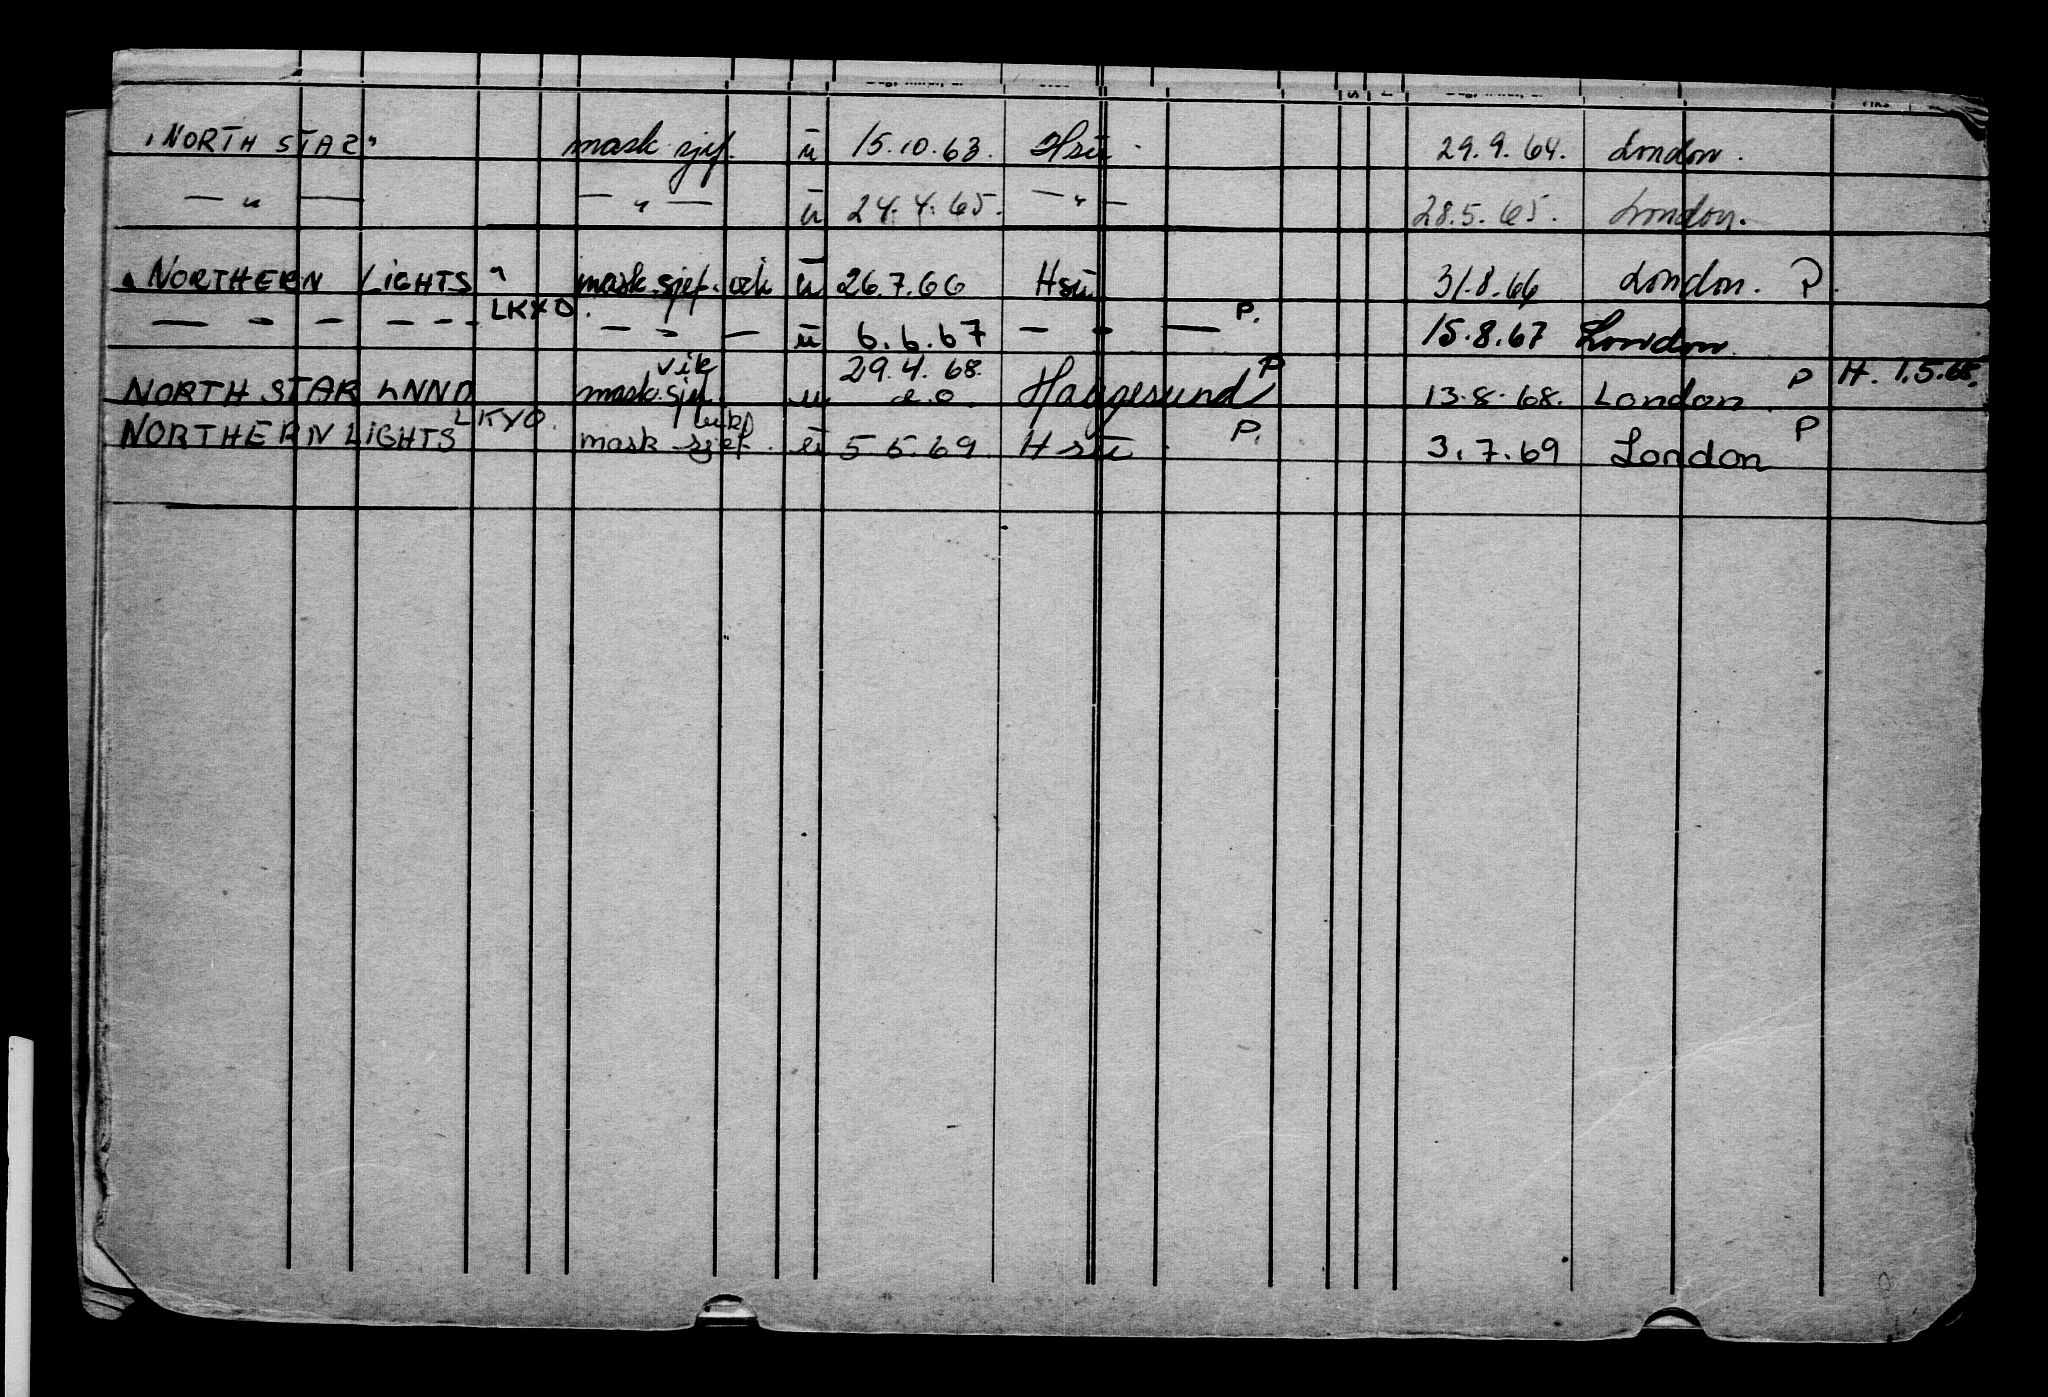 "NORTH STAR" mask sjef. u 15.10.63. Hsu. 29.9.64. London.
— " — — " — u 24.4.65. — " — 28.5.65. London.
"NORTHERN LIGHTS" mask.sjef. vik u 26.7.66 Hsu 31.8.66 London. P.
— - — - - - LKYO. — - — u 6.6.67 — - — P. 15.8.67 London.
NORTH STAR LNNO mask.sjef vik u 29.4.68. Haugesund P 13.8.68. London. P H. 1.5.68.
NORTHERN LIGHTS LKYO. mask sjef. u 5 5.69. Hsu P. 3.7.69 London P